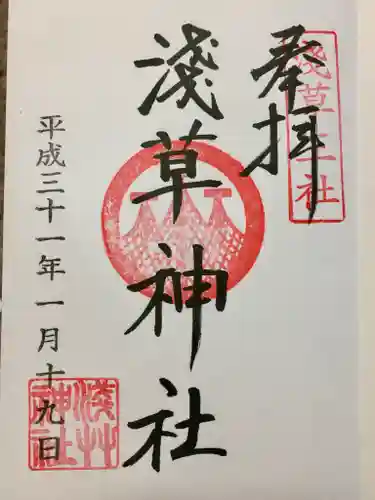 奉拝
浅草土社
淺草神社
平成三十一年一月十九日
淺草神社